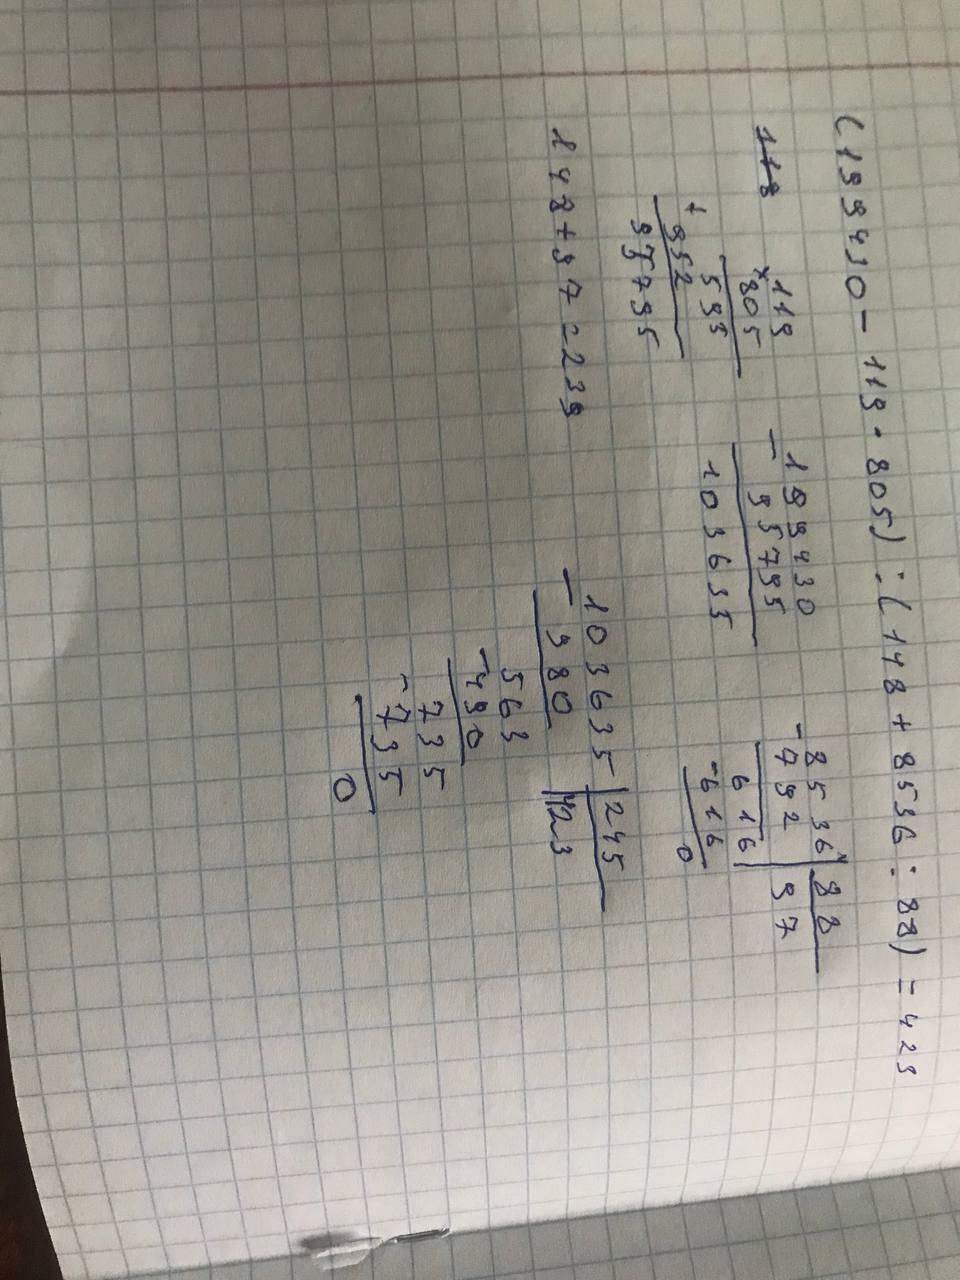 (199430 − 119 · 805) : (148 + 8536 : 88) = 423
119
×805
595
+ 952
95795
− 199430
95795
103635
− 8536 | 88
792 97
616
− 616
0
148 + 97 = 239
− 103635 | 245
980 423
563
− 490
735
− 735
0